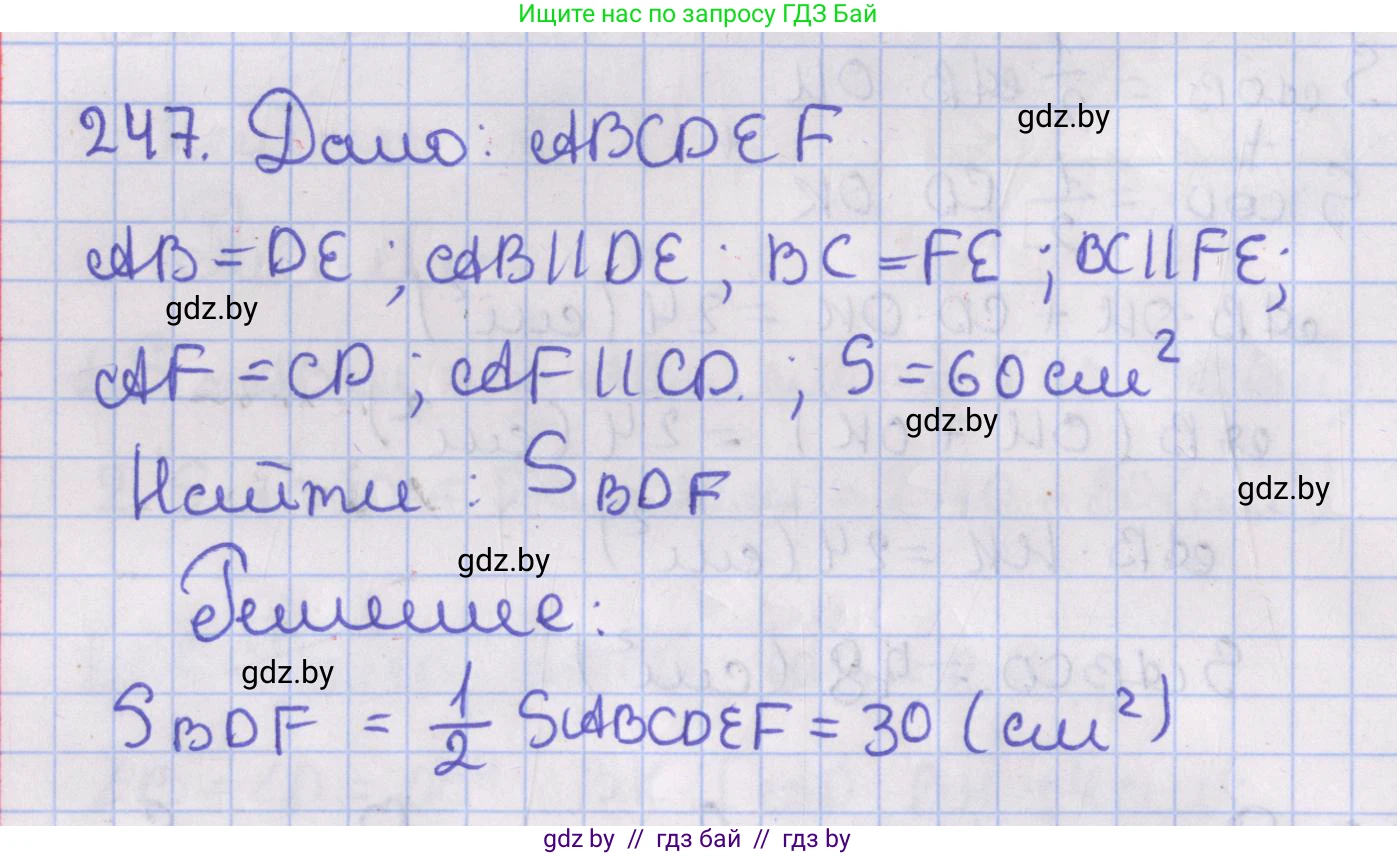 Ищите нас по запросу ГДЗ Бай
247. Дано: ABCDEF
gdz.by
AB = DE ; AB || DE ; BC = FE ; BC || FE ;
gdz.by
AF = CD ; AF || CD. ; S = 60 см²
gdz.by
Найти : S BDF
gdz.by
gdz.by
Решение:
gdz.by
S BDF = 1/2 SABCDEF = 30 (см²)
gdz by // гдз бай // гдз by